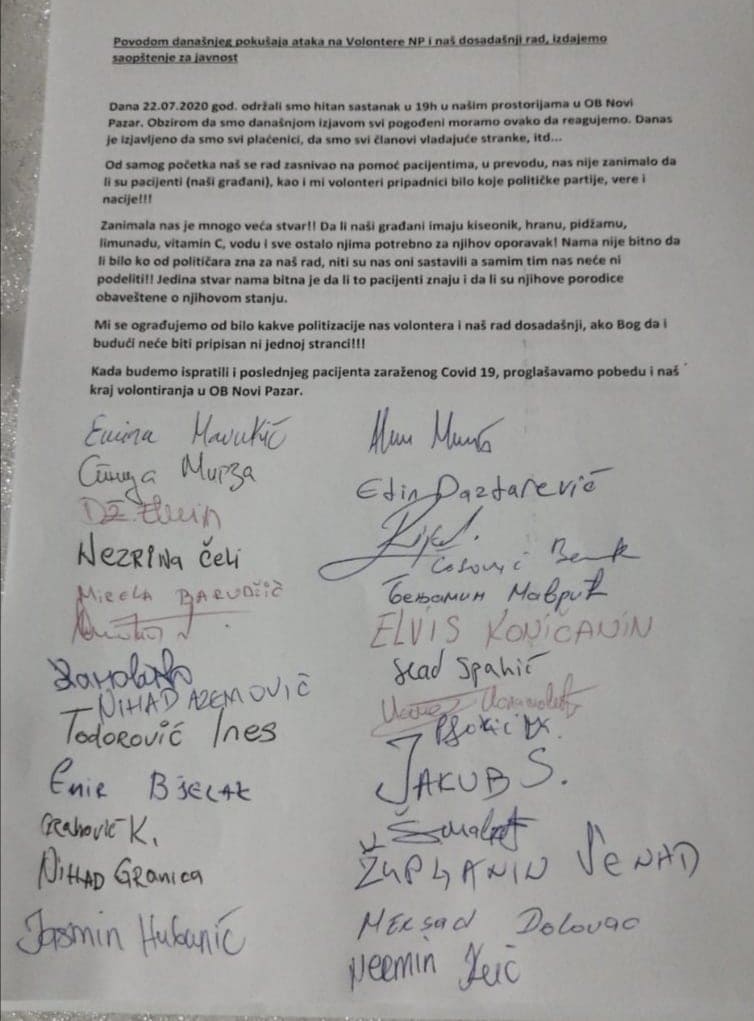 Povodom današnjeg pokušaja ataka na Volontere NP i naš dosadašnji rad, izdajemo
saopštenje za javnost
Dana 22.07.2020 god. održali smo hitan sastanak u 19h u našim prostorijama u OB Novi
Pazar. Obzirom da smo današnjom izjavom svi pogođeni moramo ovako da reagujemo. Danas
je izjavljeno da smo svi plaćenici, da smo svi članovi vladajuće stranke, itd...
Od samog početka naš se rad zasnivao na pomoć pacijentima, u prevodu, nas nije zanimalo da
li su pacijenti (naši građani), kao i mi volonteri pripadnici bilo koje političke partije, vere i
nacije!!!
Zanimala nas je mnogo veća stvar!! Da li naši građani imaju kiseonik, hranu, pidžamu,
limunadu, vitamin C, vodu i sve ostalo njima potrebno za njihov oporavak! Nama nije bitno da
li bilo ko od političara zna za naš rad, niti su nas oni sastavili a samim tim nas neće ni
podeliti!! Jedina stvar nama bitna je da li to pacijenti znaju i da li su njihove porodice
obaveštene o njihovom stanju.
Mi se ograđujemo od bilo kakve politizacije nas volontera i naš rad dosadašnji, ako Bog da i
budući neće biti pripisan ni jednoj stranci!!!
Kada budemo ispratili i poslednjeg pacijenta zaraženog Covid 19, proglašavamo pobedu i naš
kraj volontiranja u OB Novi Pazar.
Emina
Мурза
Edin Pazdarević
DŽ. Elvin
NEZRINA ČELI
Ćosović
MIRELA BARUDŽIĆ
Бењамин Маврић
ELVIS KONIČANIN
Sead Spahić
NIHAD AZEMOVIĆ
Todorović Ines
JAKUB S.
Emir BJELAK
Grahović K.
ŽUPLJANIN SENAD
NIHAD GRANICA
MERSAD DOLOVAC
Jasmin Hubanić
Nermin